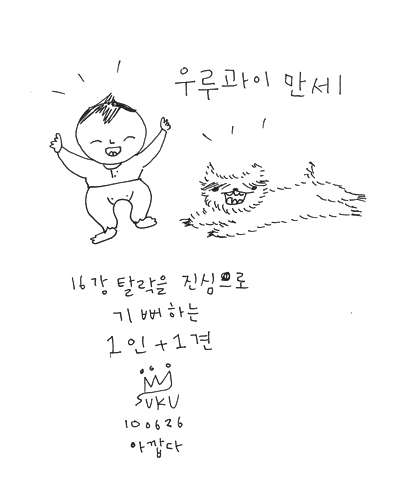 우루과이 만세!
16강 탈락을 진심으로
기뻐하는
1인+1견
SUKU
100626
아깝다